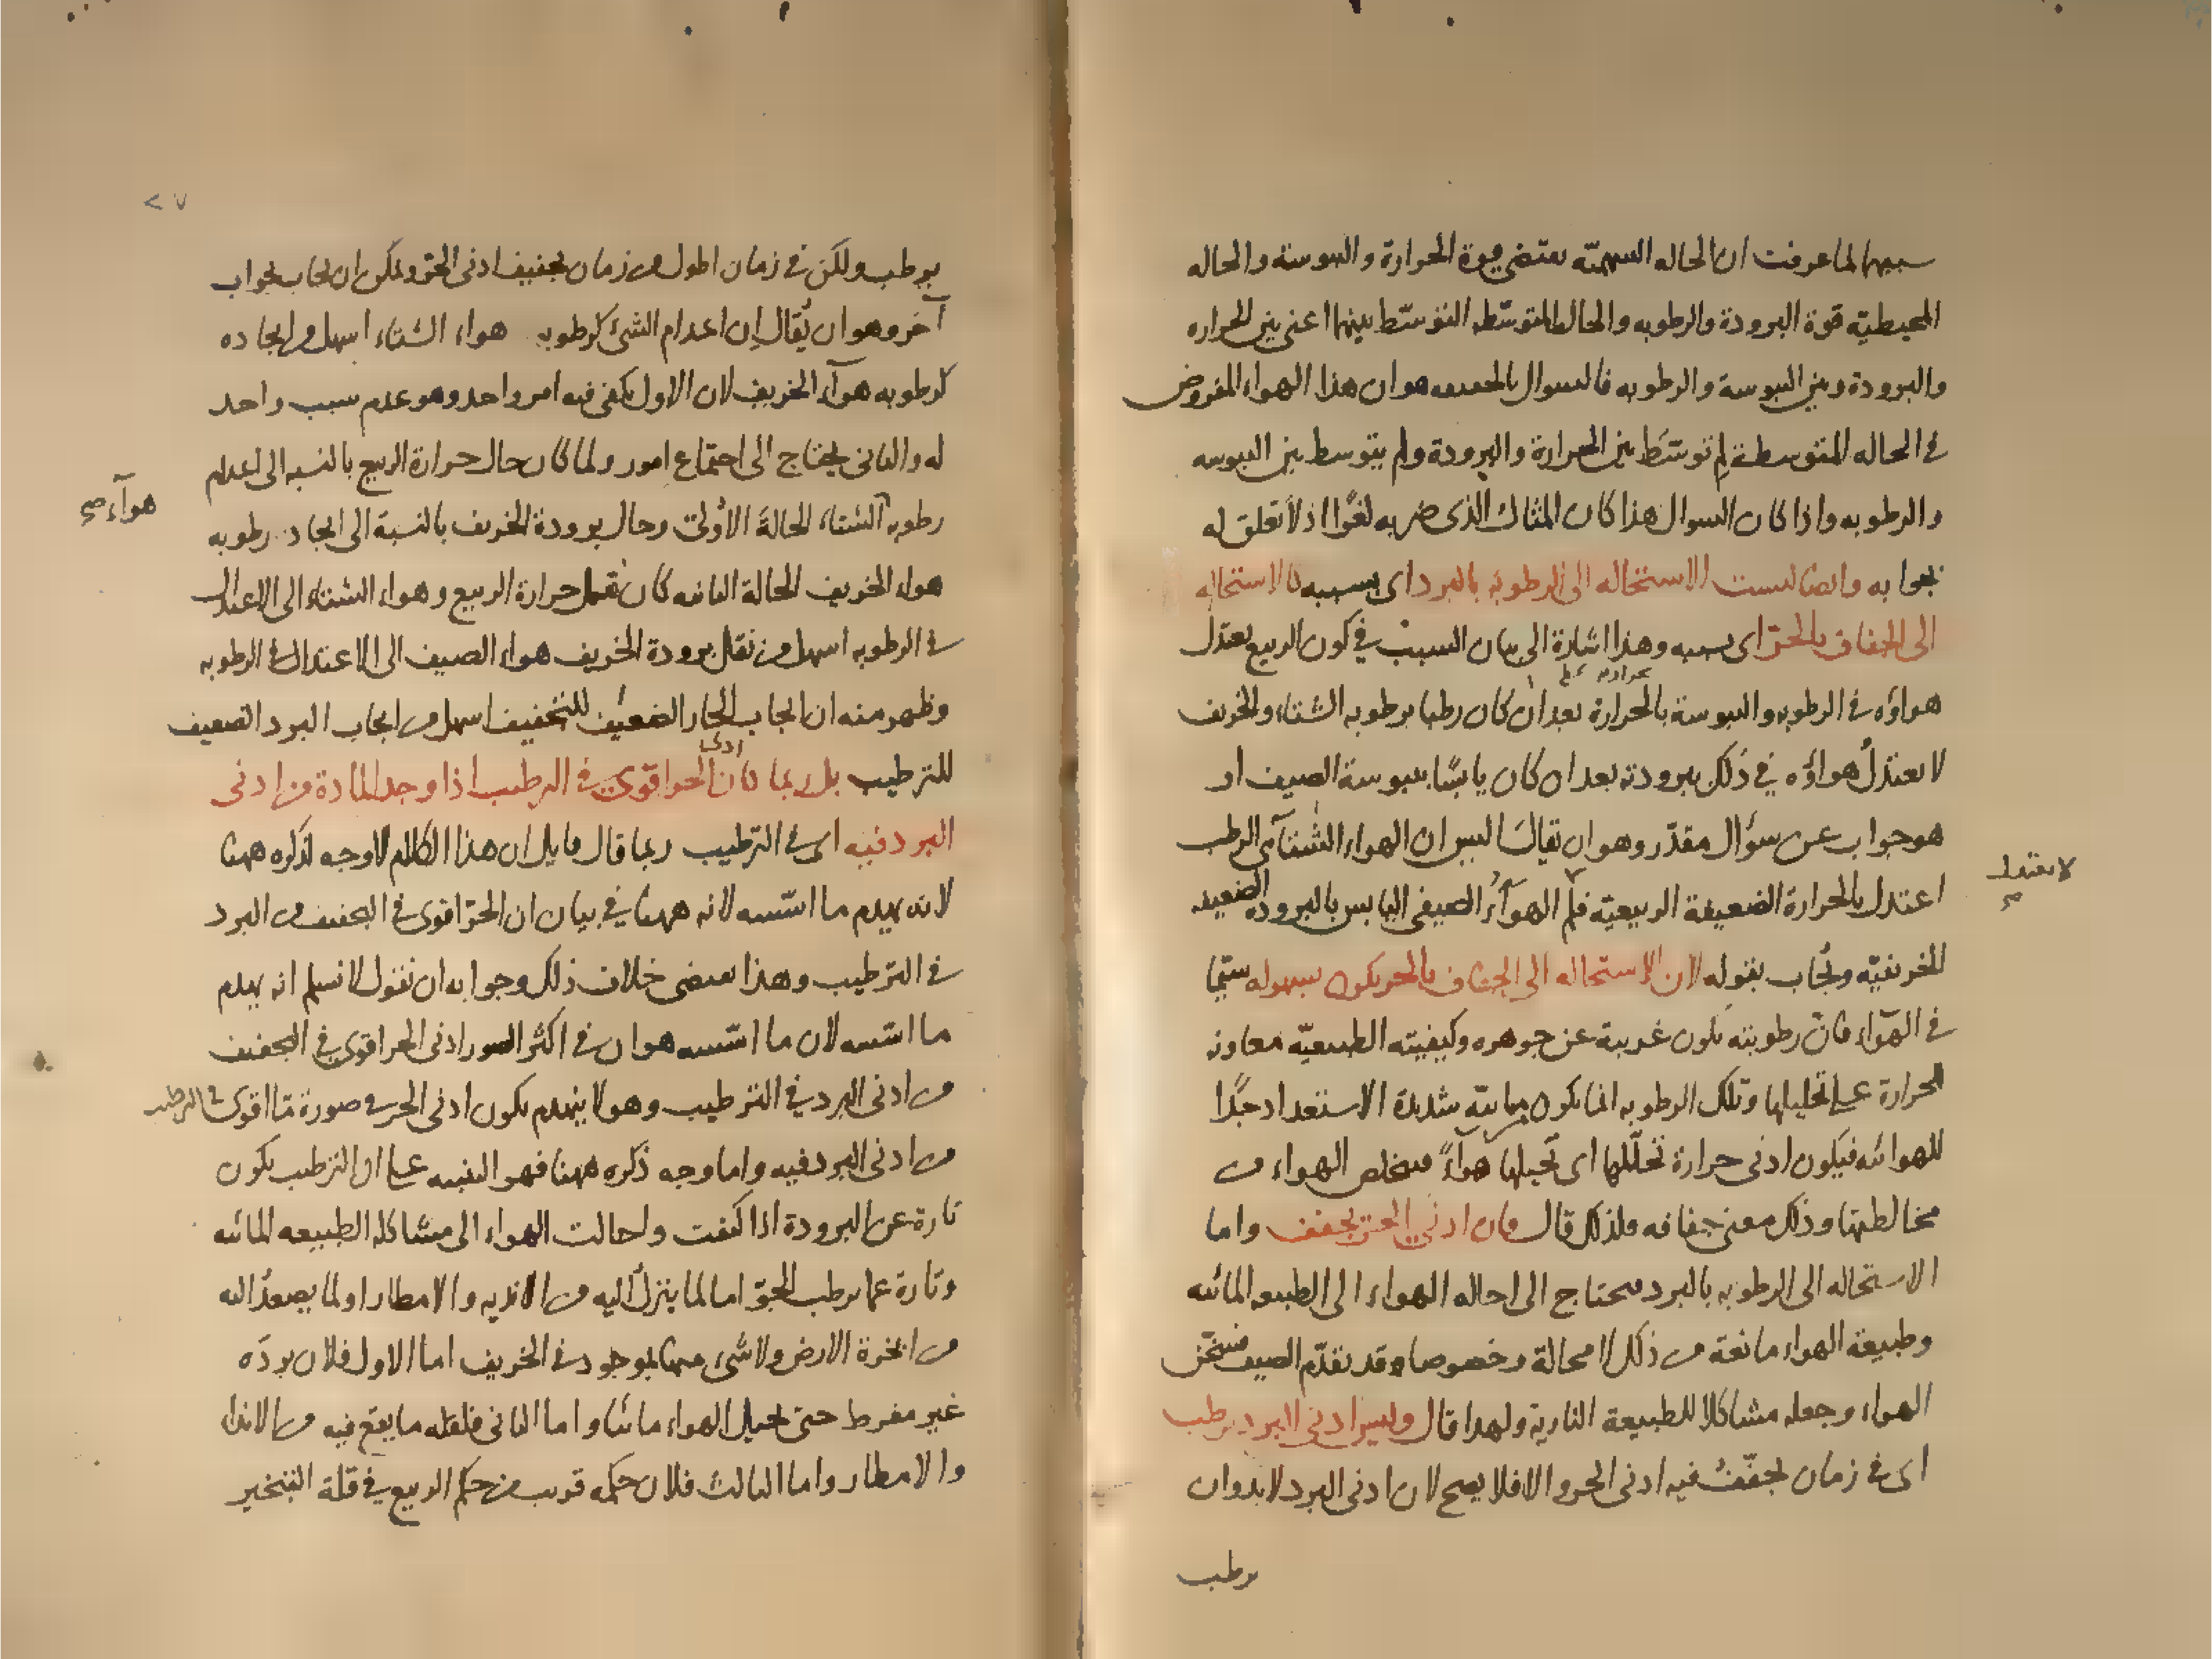 سببها لما عرفت ان الحاله السمتيّه تقتضى قوة الحرارة واليبوسة والحاله
المحيطيّة قوة البرودة والرطوبه والحالة المتوسّطه التوسّط بينهما اعنى بين الحراره
والبرودة وبين اليبوسة والرطوبه فالسوال بالحقيقه هو ان هذا الهواء المفروض
فى الحاله المتوسطة لِم توسّط بين الحرارة والبرودة ولم يتوسط بين اليبوسه
والرطوبه واذا كان السوال هذا كان المثال الذى ضربه لغوًا اذ لا تعلق له
بجوابه وايضا ليست الاستحاله الى الرطوبة بالبرد اى بسببه كالاستحاله
الى الجفاف بالحرّ اى بسببه وهذا اشارة الى بيان السبب فى كون الربيع يعتدل
هواؤه فى الرطوبه واليبوسة بالحرارة بعد ان كان رطبا برطوبه الشتاء والخريف
لا يعتدلُ هواؤه فى ذلك ببرودته بعد ان كان يابسًا بيبوسة الصيف او
هو جواب عن سؤال مقدّر وهو ان يقال أليس ان الهواء الشتآىّ الرطب
اعتدل بالحرارة الضعيفة الربيعيّه فلم الهوآءُ الصيفى اليابس بالبروده الضعيفه
لا يعتدل صح
الخريفيّه ويُجاب بقوله لان الاستحاله الى الجفاف بالحر يكون بسهوله سيّما
فى الهوآء فانّ رطوبته تكون غريبة عن جوهره وكيفيته الطبيعيّه معاونه
الحرارة على تحليلها وتلك الرطوبه انما يكون مائيّه شديدة الاستعداد جدًا
للهوائيه فيكون ادنى حرارة تحلّلها اى تحيلها هوآءً فيخلص الهواء من
مخالطتها وذلك معنى جفافه فلذلك قال فان ادنى الحرّ يجفف واما
الاستحاله الى الرطوبه بالبرد فيحتاج الى احاله الهواء الى الطبيعه المائيه
وطبيعة الهواء مانعة من ذلك لا محالة وخصوصا وقد تقدّم الصيف فسخّن
الهواء وجعله مشاكلا للطبيعة النارية ولهذا قال وليس ادنى البرد يرطب
اى فى زمان يجفّفُ فيه ادنى الحر والا فلا يصح لان ادنى البرد لا بد وان
يرطب
٢٧
يرطب ولكن فى زمان اطول من زمان تجفيف ادنى الحرّ ويمكن ان يجاب بجواب
آخر وهو ان يُقال إن اعدام الشئ كرطوبه هواء الشتاء اسهل من ايجاده
كرطوبه هوآء الخريف لان الاول يكفى فيه امر واحد وهو عدم سبب واحد
له والثانى يحتاج الى اجتماع امور ولما كان حال حرارة الربيع بالنسبه الى اعدام
رطوبه الشتاء الحالة الأولى وحال برودة الخريف بالنسبة الى ايجاد رطوبه
هوآء صح
هواء الخريف الحالة الثانيه كان نقل حرارة الربيع وهواء الشتاء الى الاعتدال
فى الرطوبه اسهل من نقل برودة الخريف هواء الصيف الى الاعتدال فى الرطوبه
وظهر منه ان ايجاب الحار الضعيف للتجفيف اسهل من ايجاب البرد الضعيف
للترطيب بل ربما كان ادنى الحر اقوى فى الرطب اذا وجد المادة من ادنى
البرد فيه اى فى الترطيب ربما قال قايل ان هذا الكلام لا وجه لذكره ههنا
لانه يهدم ما اسّسه لانه ههنا فى بيان ان الحرّ اقوى فى التجفيف من البرد
فى الترطيب وهذا يقتضى خلاف ذلك وجوابه ان نقول لا نسلم انه يهدم
ما اسّسه لان ما اسّسه هو ان فى اكثر الصور ادنى الحر اقوى فى التجفيف
من ادنى البرد فى الترطيب وهو لا ينهدم بكون ادنى الحر فى صورة مّا اقوى فى الترطيب
من ادنى البرد فيه واما وجه ذكره ههنا فهو التنبيه على ان الترطيب يكون
تارة عن البرودة اذا كثفت واحالت الهواء الى مشاكلة الطبيعه المائيه
وتارة عما يرطب الجوّ اما لما ينزل اليه من الانديه والامطار او لما يصعدُ اليه
من ابخرة الارض ولا شىء منها بموجود فى الخريف اما الاول فلان برده
غير مفرط حتى يحيل الهواء مائيا واما الثانى فلقله ما يقع فيه من الاندا
والامطار واما الثالث فلان حكمه قريب من حكم الربيع فى قلة التبخير